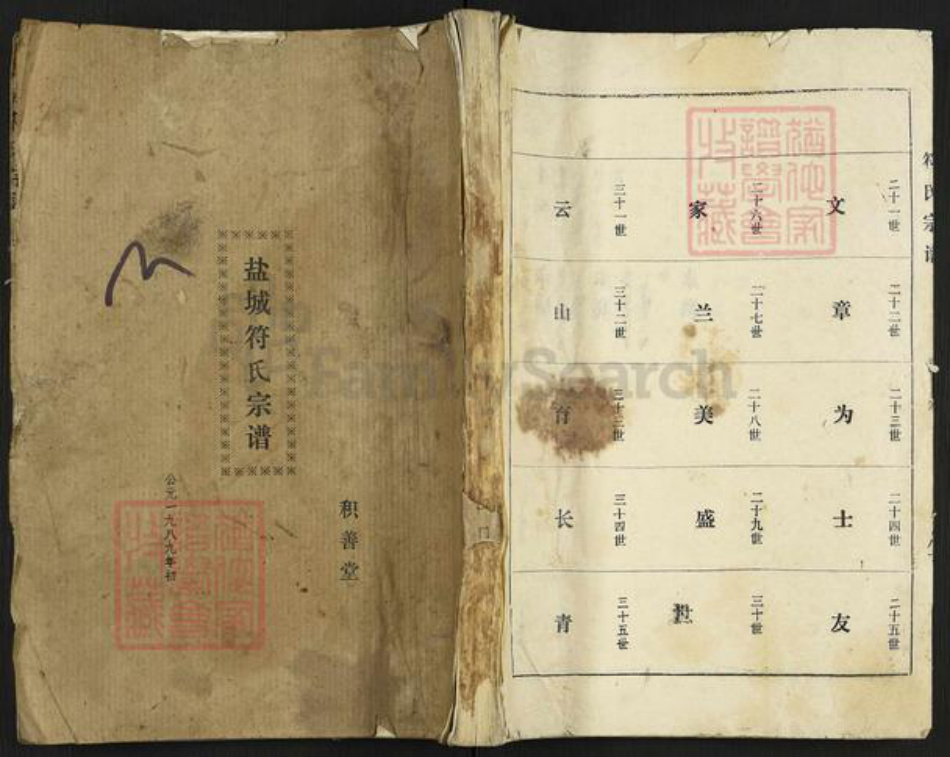 盐城符氏宗谱
积善堂
公元一九八九年初
符氏宗谱
二十一世 文
二十二世 章
二十三世 为
二十四世 士
二十五世 友
二十六世 家
二十七世 兰
二十八世 美
二十九世 盛
三十世
三十一世 云
三十二世 山
三十三世 育
三十四世 长
三十五世 青
FamilySearch